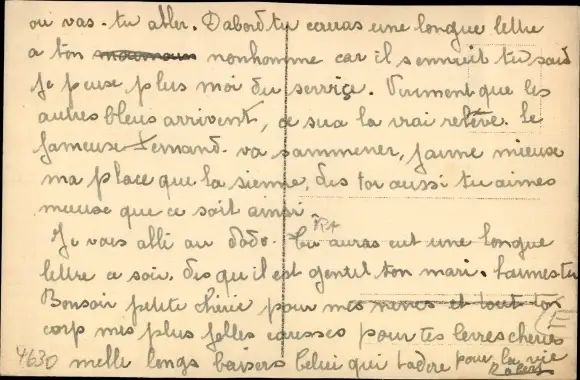 ou vas-tu aller. Dabord tu cauras une longue lettre
a ton nonhomme car il sennuit tu sais
Je pense plus moi du service. Viement que les
autres bleus arrivent, ce sera la vrai relève. Le
fameuse Fernand va sammener, jaime mieuse
ma place que la sienne, dis toi aussi tu aimes
mieuse que ce soit ainsi
Je vais allé au dodo. Tu auras eut une longue
lettre ce soir, dis quil est gentil ton mari. Laimes-tu
Bonsoir petite chérie pour mes et tout ton
corp mes plus folles caresses pour tes levres cheries
melle longs baisers Celui qui tadore pour la vie
4630 Robert